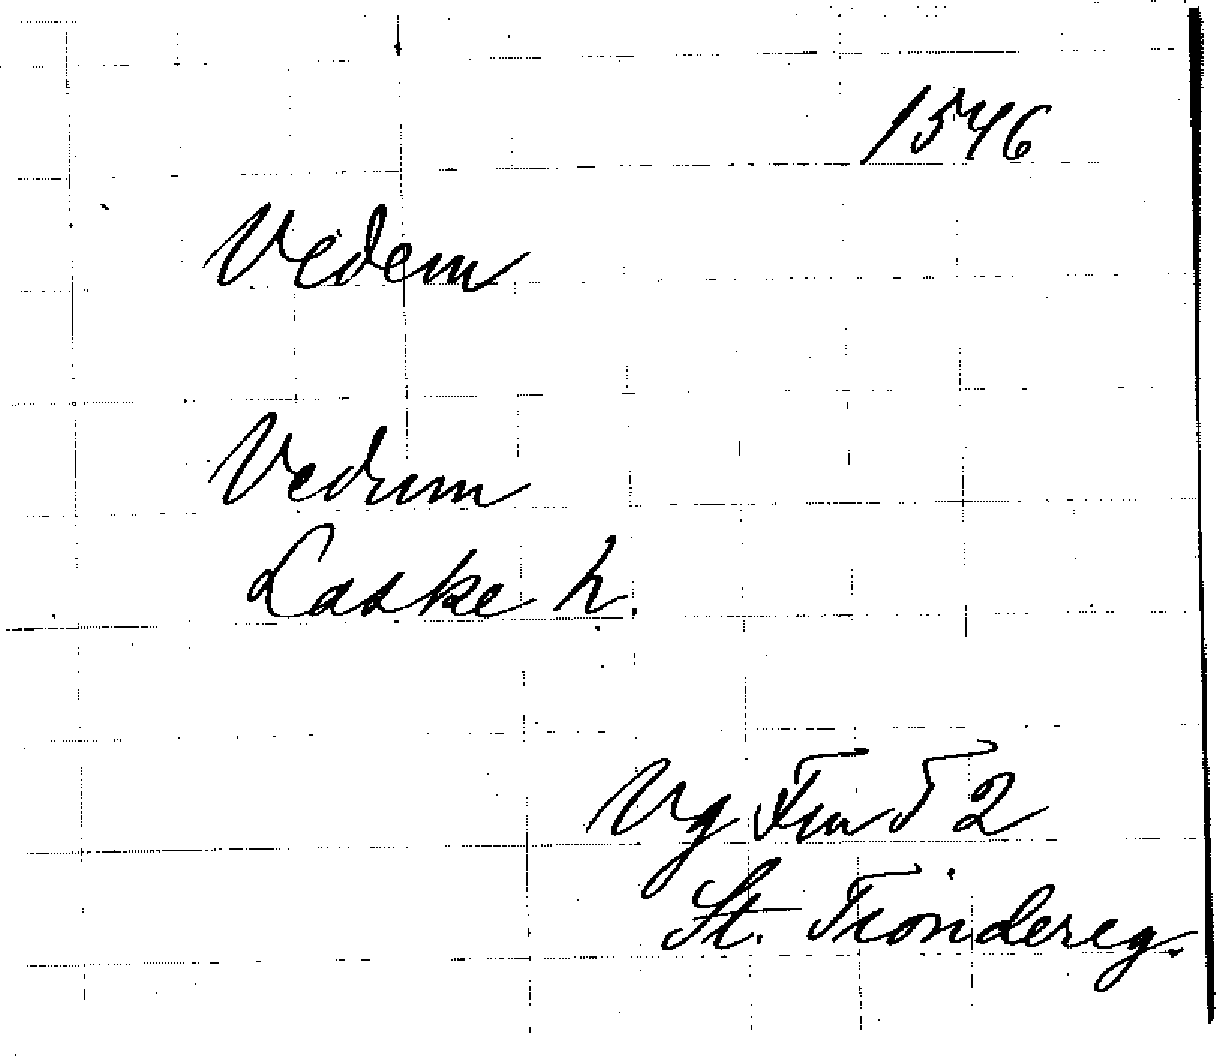 1546
Vedem
Vedum
Laske h.
Vg Fru 5 2
St. Tiondereg.